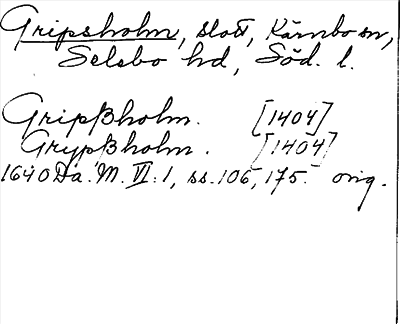 Gripsholm, slott, Kärnbo sn,
Selebo hd, Söd. l.
Gripßholm. [1404]
Grypßholm. [1404]
1640 Da. M. VI: 1, ss. 106, 175. orig.